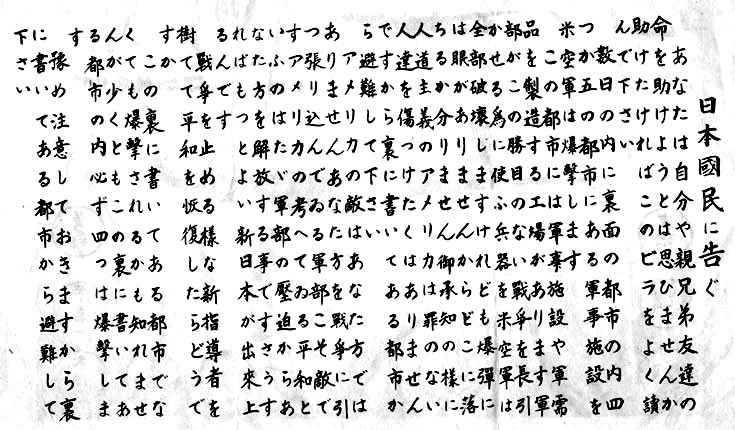 日本國民に告ぐ
あなたは自分や親兄弟友達の
命を助けようとは思ひませんか
助けたければこのビラをよく讀
んで下さい
数日の内に裏面の都市の内四
つか五の都市にある軍事施設を
米空軍は爆撃します
この都市には軍事施設や軍需
品を製造する工場があります軍
部がこの勝目のない戦争を長引
かせる為に使ふ兵器を米空軍は
全部破壊しますけれども爆彈に
は眼がありませんからどこに落
ちるか分りません御承知の様に
人道主義のアメリカは罪のない
人達を傷つけたくはありません
ですから裏に書いてある都市か
ら避難して下さい
アメリカの敵はあなた方では
ありませんあなた方を戦争に引
つ張り込んでゐる軍部こそ敵で
すアメリカの考へてゐる平和と
いふのはたゞ軍部の壓迫からあ
なた方を解放する事ですさうす
ればもつとよい新日本が出來上
るんです
戦争を止める様な新指導者を
樹てて平和を恢復したらどうで
すか
この裏に書いてある都市でな
くても爆撃されるかも知れませ
んが少くともこの裏に書いてあ
る都市の内必ず四つは爆撃しま
す
豫め注意しておきますから裏
に書いてある都市から避難して
下さい